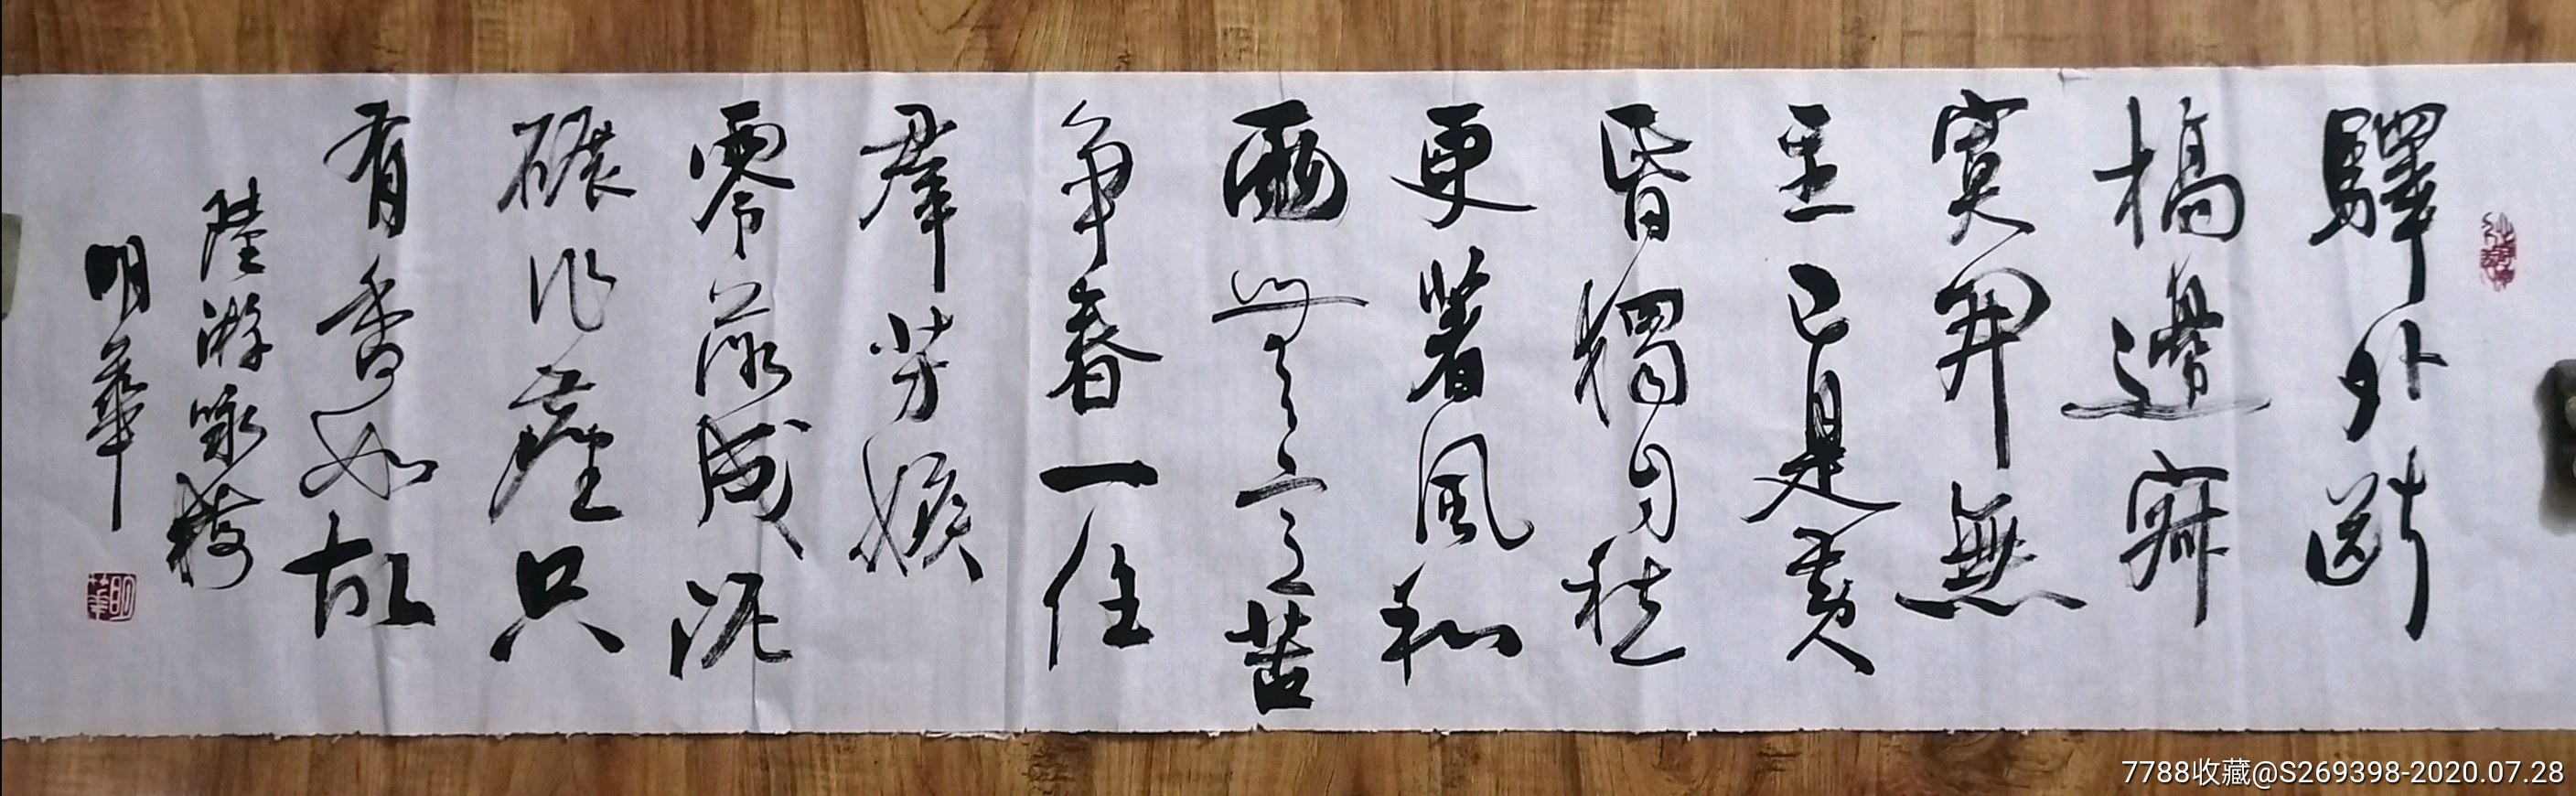 驛外斷
橋邊寂
寞開無
主已是黄
昏獨自愁
更著風和
雨無意苦
争春一任
羣芳嫉
零落成泥
碾作塵只
有香如故
陸游詠梅
明華
明華
7788收藏@S269398-2020.07.28